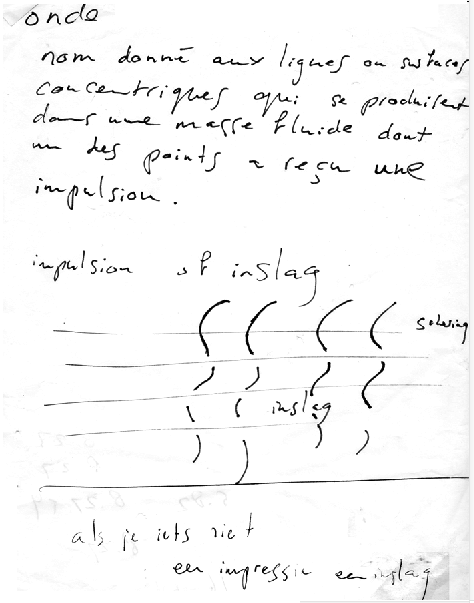 onde
nom donné aux lignes ou surfaces
concentriques qui se produisent
dans une masse fluide dont
un des points a reçu une
impulsion.
impulsion of inslag
inslag
als je iets ziet
een impressie een inslag